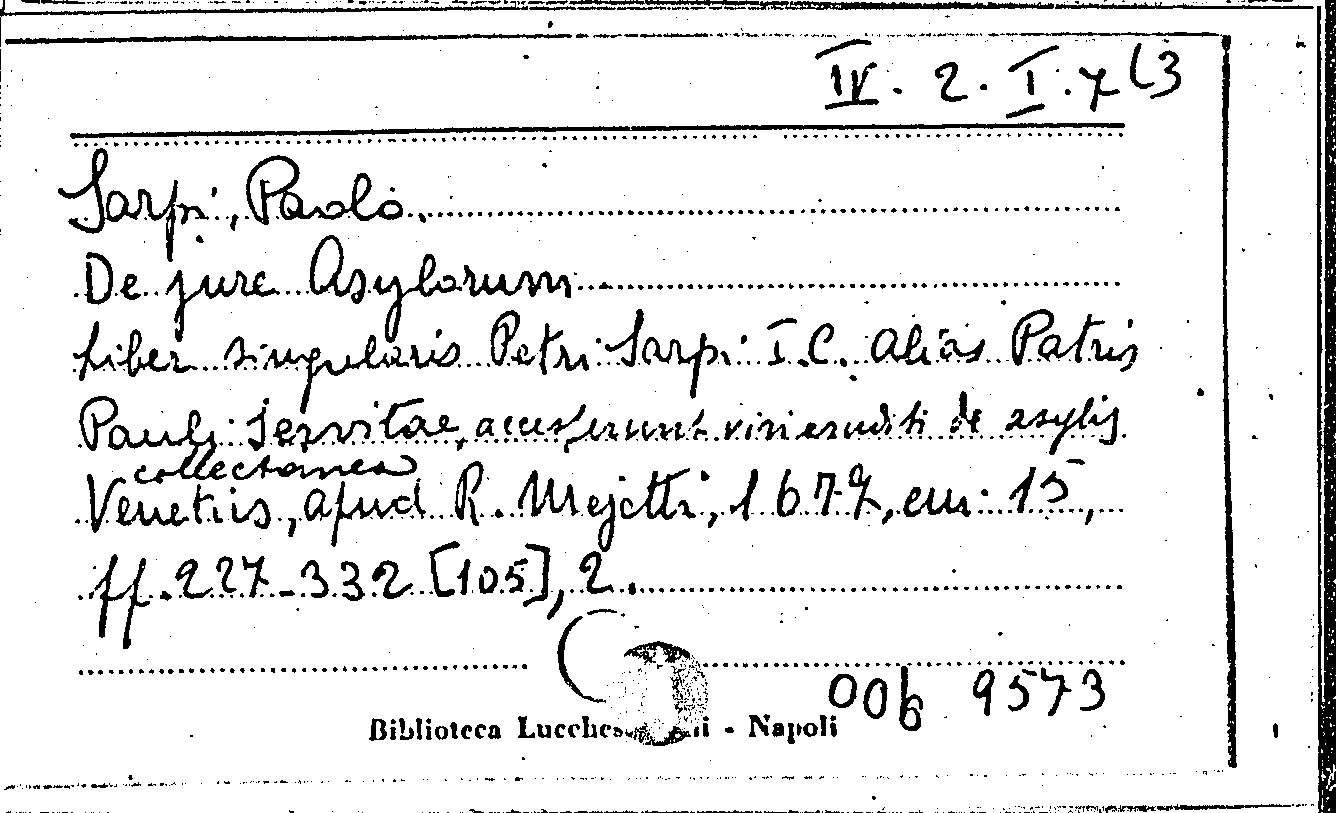 IV. 2. I. 7 (3
Sarpi, Paolo.
De jure Asylorum
Liber singularis Petri Sarpi I.C. alias Patris
Pauli Servitae, accesserunt viri eruditi de asylis
collectanea
Venetiis, apud R. Mejetti, 1677, cm. 15,
ff. 227-332 [105], 2.
006 9573
Biblioteca - Napoli